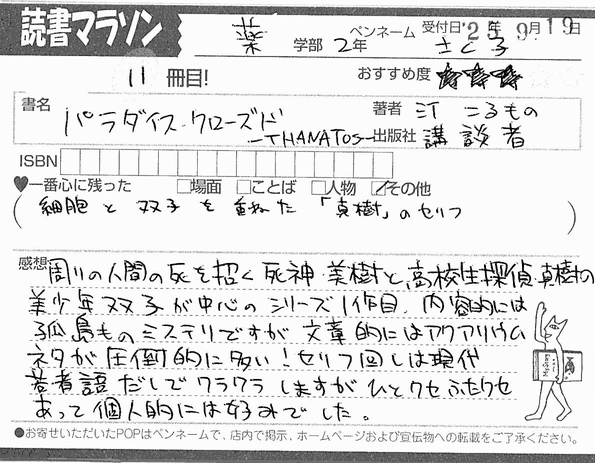 読書マラソン
薬 学部 2年 ペンネーム さく子 受付日 '25年 9月19日
11 冊目! おすすめ度 ★★★
書名 パラダイス・クローズド —THANATOS—
著者 汀 こるもの
出版社 講談者
ISBN
♥一番心に残った □場面 □ことば □人物 ☑その他
(細胞と双子を重ねた「真樹」のセリフ)
感想 周りの人間の死を招く死神・美樹と、高校生探偵・真樹の
美少年双子が中心のシリーズ1作目。内容的には
孤島ものミステリですが文章的にはアクアリウム
ネタが圧倒的に多い!セリフ回しは現代
若者語だしでクラクラしますがひとクセふたクセ
あって個人的には好みでした。
●お寄せいただいたPOPはペンネームで、店内で掲示、ホームページおよび宣伝物への転載をご了承ください。